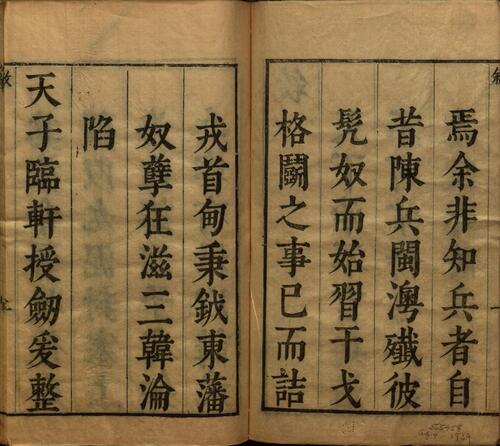 焉余非知兵者自
昔陳兵閩灣殲彼
髡奴而始習干戈
格鬬之事已而詰
戎首甸秉鉞東藩
奴孽狂滋三韓淪
陷
天子臨軒授劒爰整